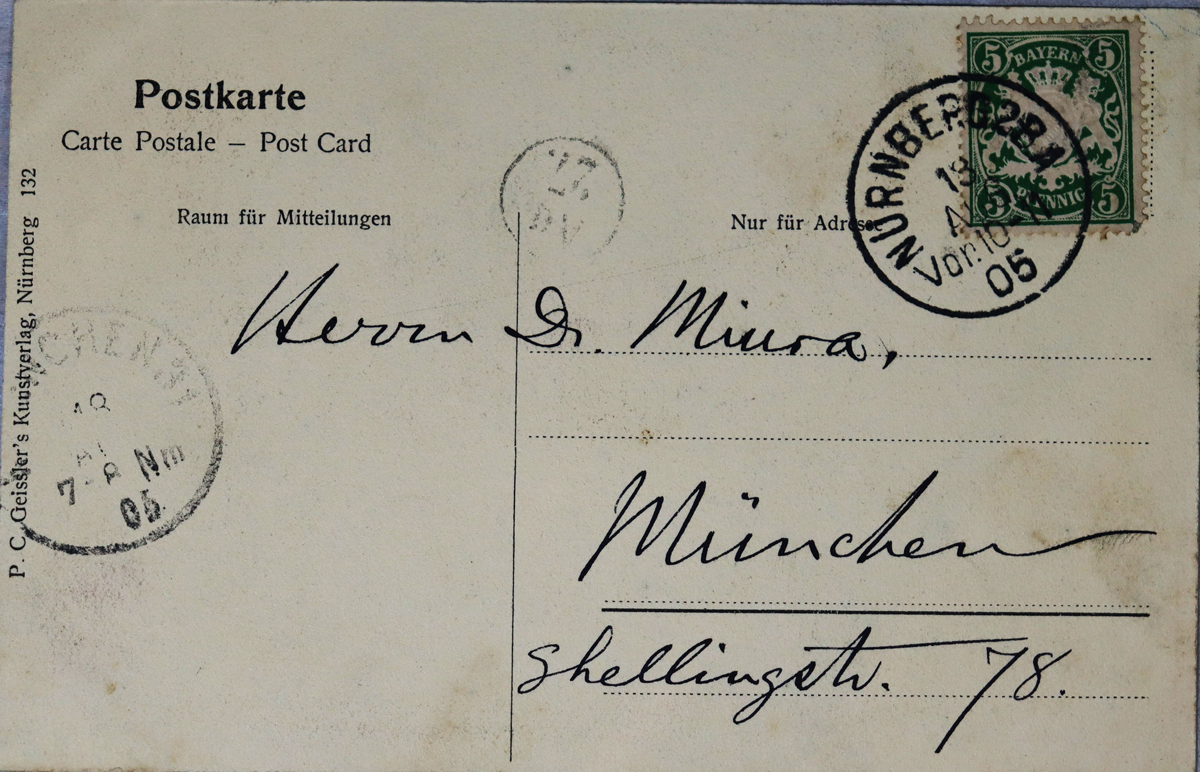 Postkarte
Carte Postale – Post Card
Raum für Mitteilungen
Nur für Adresse
5 BAYERN 5
5 PFENNIG 5
NÜRNBERG 2 B.A
Vor. 10-11
05
Herrn Dr. Miura,
München
Shellingstr. 78.
P. C. Geissler's Kunstverlag, Nürnberg 132
7-8 Nm
05